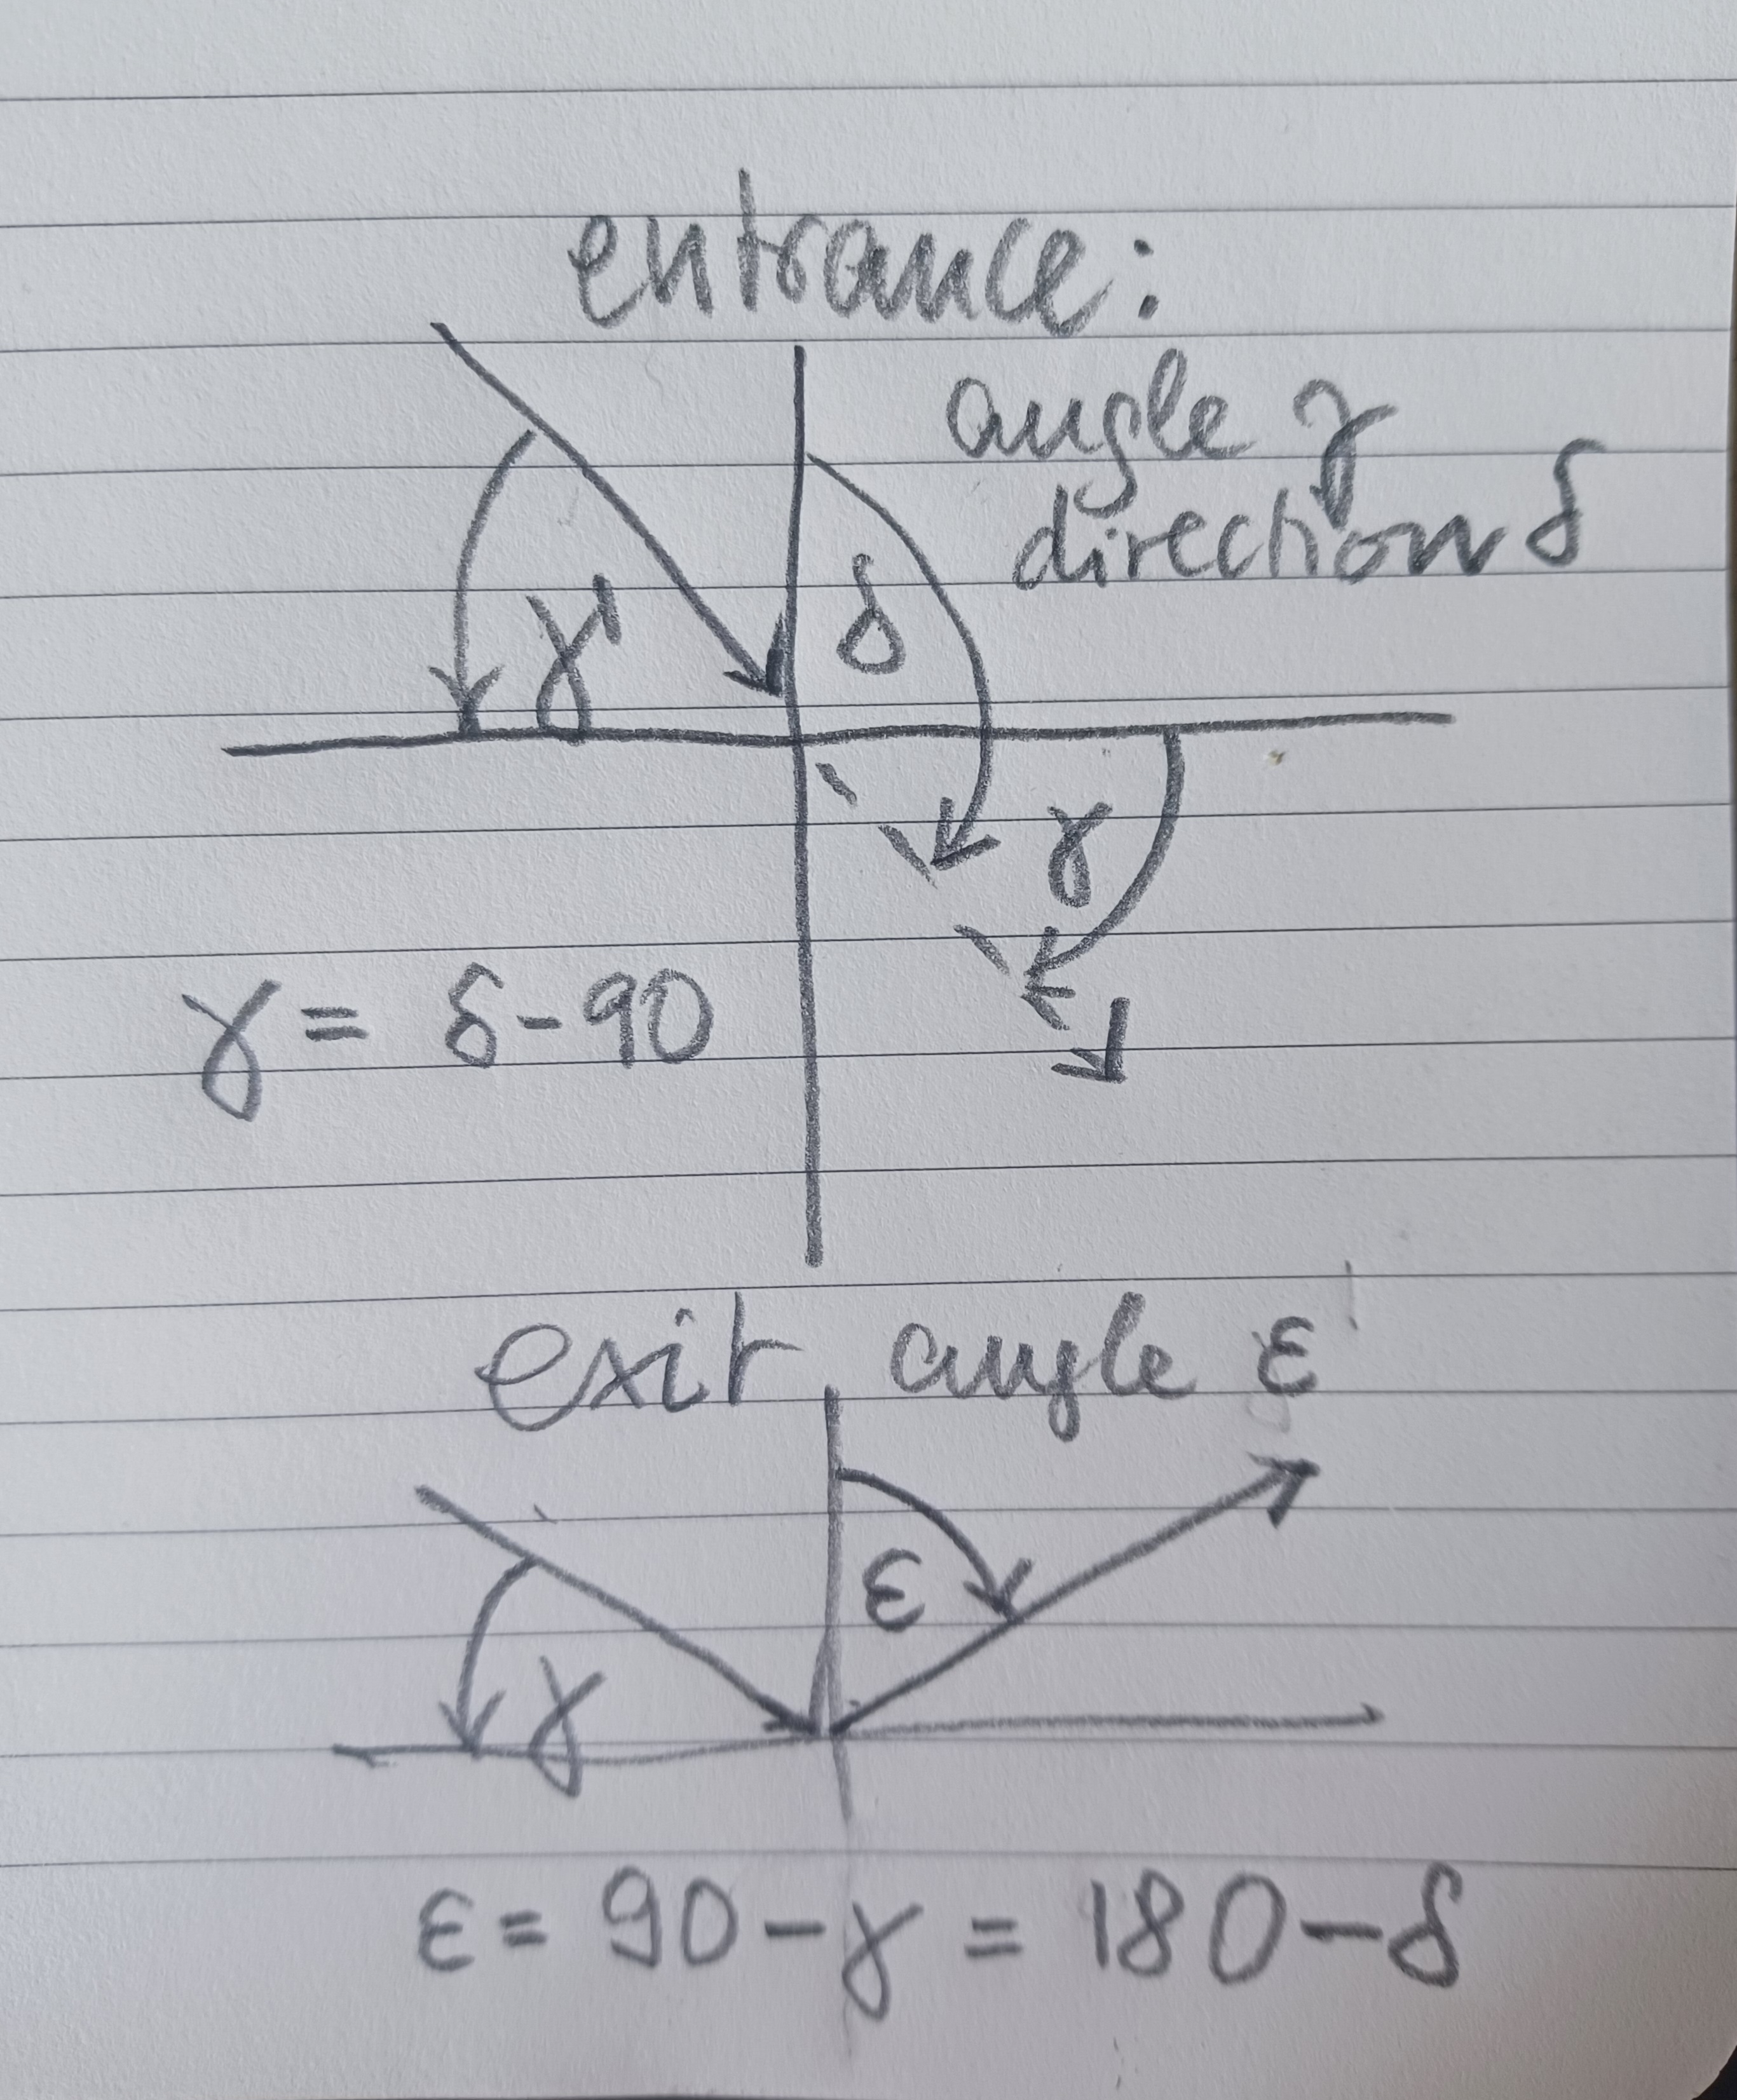 entrance:
angle γ
direction δ
γ'
δ
γ
γ = δ-90
exit angle ε
ε
γ
ε = 90-γ = 180-δ